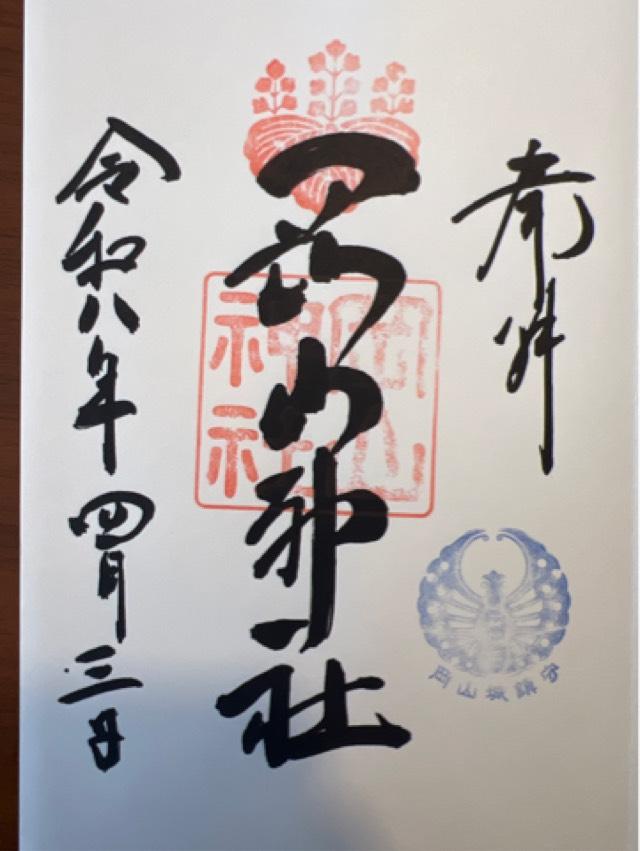 奉拝
岡山神社
岡山神社
岡山城鎮守
令和八年四月三日